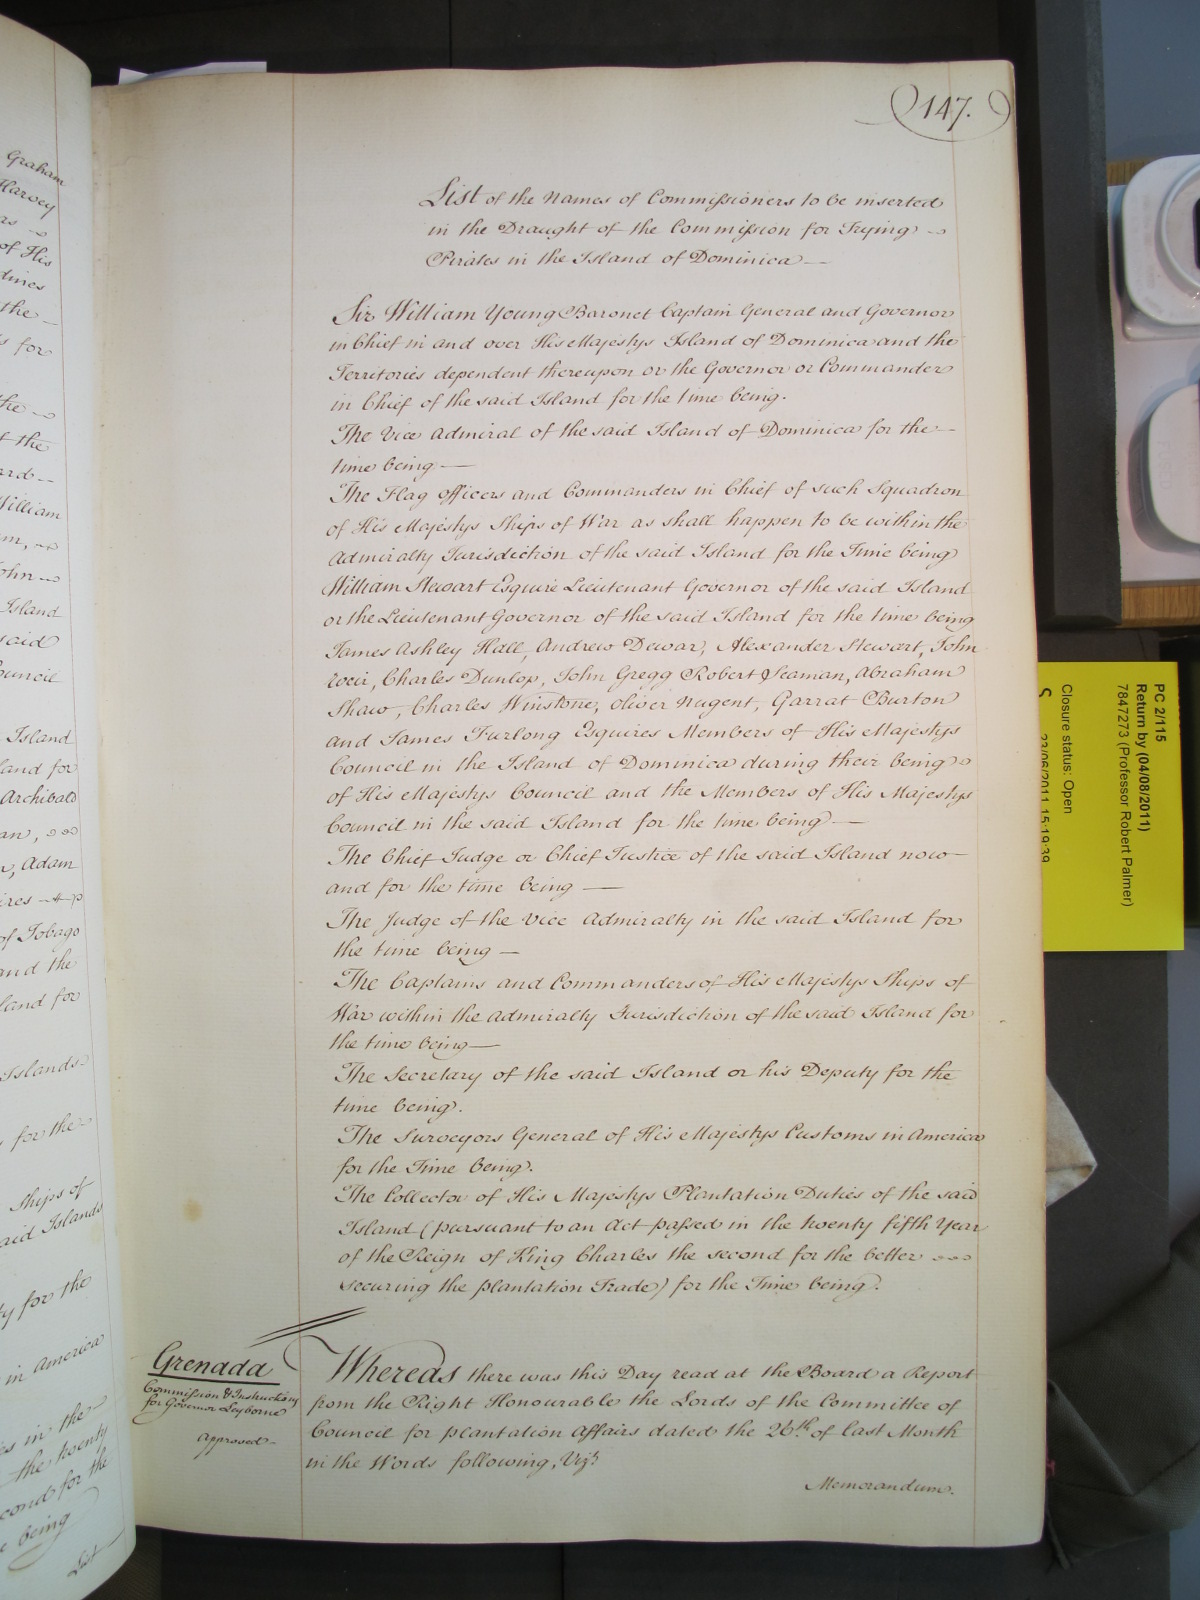 Graham
Harvey
as
of His
dines
the
s for
the
t the
ard
William
m,
John
Island
said
ouncil
Island
land for
Archibald
an,
r, Adam
ires
of Tobago
and the
land for
Islands
for the
Ships of
aid Islands
ty for the
in America
es in the
the twenty
econd for the
e being
List
147.
List of the Names of Commissioners to be inserted
in the Draught of the Commission for Trying
Pirates in the Island of Dominica
Sir William Young Baronet Captain General and Governor
in Chief in and over His Majestys Island of Dominica and the
Territories dependent thereupon or the Governor or Commander
in Chief of the said Island for the time being.
The Vice Admiral of the said Island of Dominica for the
time being
The Flag officers and Commanders in Chief of such Squadron
of His Majestys Ships of War as shall happen to be within the
Admiralty Jurisdiction of the said Island for the Time being
William Stewart Esquire Lieutenant Governor of the said Island
or the Lieutenant Governor of the said Island for the time being
James Ashley Hall, Andrew Dewar, Alexander Stewart, John
Charles Dunlop, John Gregg Robert Seaman, Abraham
Shaw, Charles Winstone, Oliver Nugent, Garrat Burton
and James Furlong Esquires Members of His Majestys
Council in the Island of Dominica during their being
of His Majestys Council and the Members of His Majestys
Council in the said Island for the time being
The Chief Judge or Chief Justice of the said Island now
and for the time being
The Judge of the Vice Admiralty in the said Island for
the time being
The Captains and Commanders of His Majestys Ships of
War within the Admiralty Jurisdiction of the said Island for
the time being
The Secretary of the said Island or his Deputy for the
time being.
The Surveyors General of His Majestys Customs in America
for the Time being.
The Collector of His Majestys Plantation Duties of the said
Island (pursuant to an Act passed in the twenty fifth Year
of the Reign of King Charles the second for the better
securing the plantation Trade) for the Time being.
Grenada
Commission & Instructions
for Governor Leyborne
Approved
Whereas there was this Day read at the Board a Report
from the Right Honourable the Lords of the Committee of
Council for plantation Affairs dated the 26th of last Month
in the Words following, Vizt
Memorandum.
PC 2/115
Return by (04/08/2011)
7847273 (Professor Robert Palmer)
Closure status: Open
23/06/2011 15:19:39